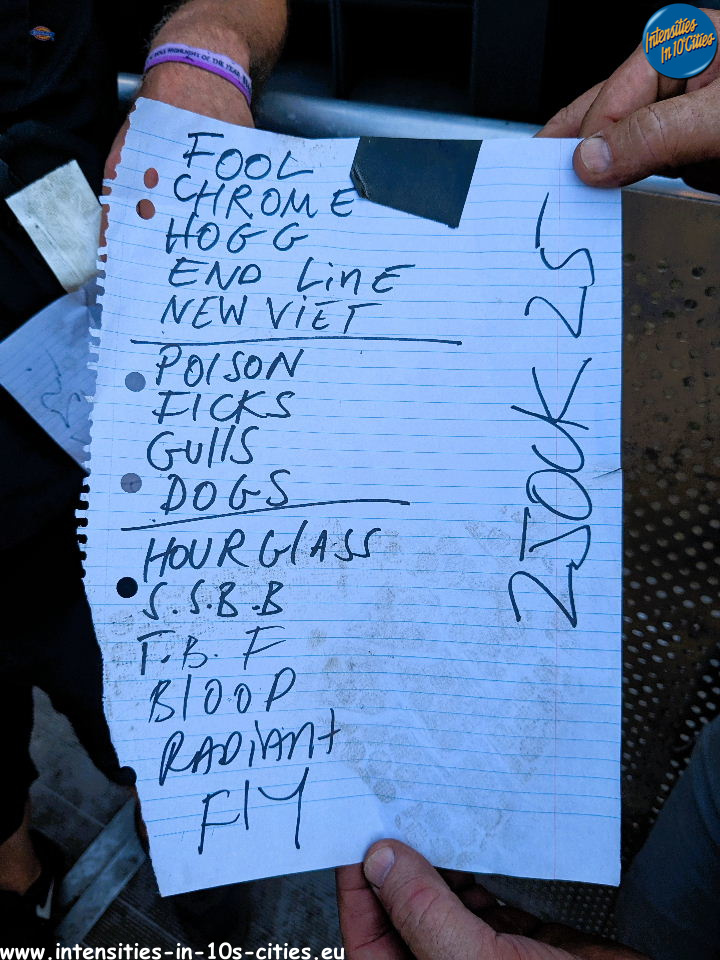 Intensities
In 10 Cities
HIGHLIGHT OF THE YEAR
FOOL
CHROME
HOGG
END LinE
NEW ViET
POISON
FICKS
GullS
DOGS
HOURGlASS
S.S.B.B
T.B.F
BlOOD
RADiANt
FlY
2JOUK 25
www.intensities-in-10s-cities.eu